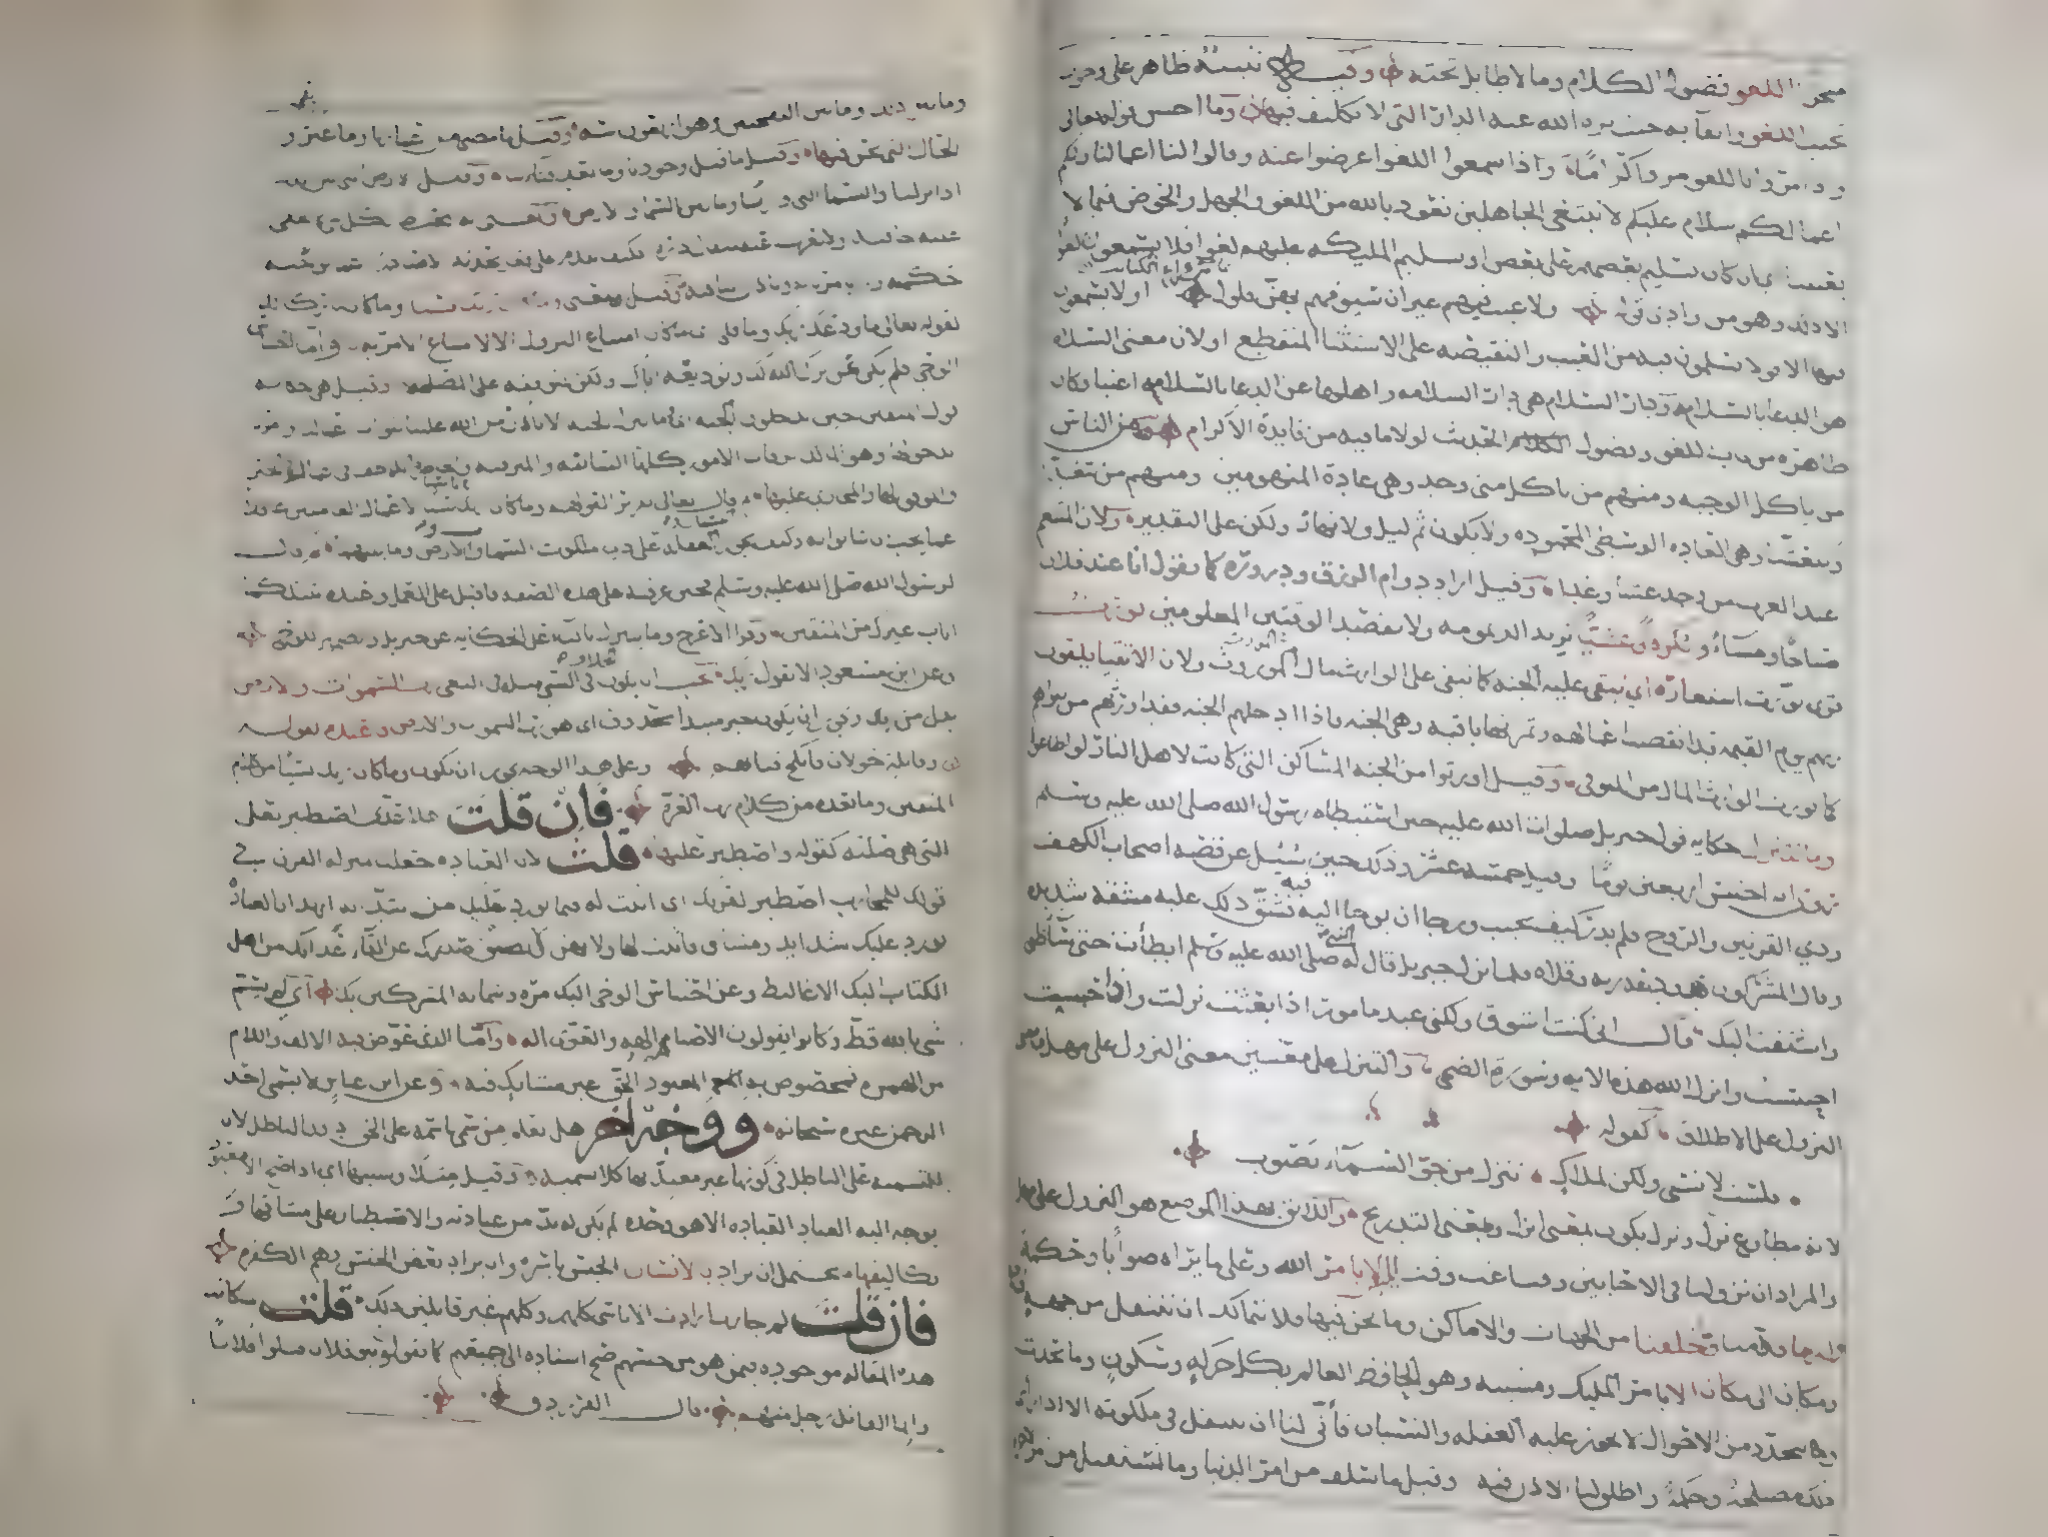 اللغو فضول الكلام وما لا طايل تحته وفيه تنبيه ظاهر على وجوب
تجنب اللغو واتقايه حيث نزه الله عنه الدار التي لا تكليف فيها وما احسن قوله تعالى
واذا مروا باللغو مروا كراما واذا سمعوا اللغو اعرضوا عنه وقالوا لنا اعمالنا ولكم
اعمالكم سلام عليكم لا نبتغي الجاهلين نعوذ بالله من اللغو والجهل والخوض فيما لا
يعنينا اي ان كان تسليم بعضهم على بعض او تسليم المليكة عليهم لغوا فلا يسمعون لغوا
الا ذلك وهو من وادي قوله ولا عيب فيهم غير ان سيوفهم بهن فلول من قراع الكتايب او لا يسمعون
فيها الا قولا يسلمون فيه من العيب والنقيصة على الاستثنا المنقطع او لان معنى السلام
هو الدعا بالسلامة ودار السلام هي دار السلامة واهلها عن الدعا بالسلامة اغنيا وكان
ظاهره من باب اللغو وفضول الحديث لولا ما فيه من فايدة الاكرام من الناس
من ياكل الوجبة ومنهم من ياكل متى وجد وهي عادة المنهومين ومنهم من يتغدى
ويتعشى وهي العادة الوسطى المحمودة ولا يكون ثم ليل ولا نهار ولكن على التقدير ولان المتنعم
عند العرب من وجد عشا وغدا وقيل اراد دوام الرزق ودروره كما تقول انا عند فلان
صباحا ومساء وبكرة وعشيا تريد الديمومة ولا تقصد الوقتين المعلومين نورث
قرى نورث استعارة اي نبقي عليه الجنة كما نبقي على الوارث مال الموروث ولان الاتقيا يلقون
ربهم يوم القيمة قد انقضت اعمالهم وثمرتها باقية وهي الجنة فاذا ادخلهم الجنة فقد اورثهم من تقواهم
كما يورث الوارث المال من المتوفى وقيل اورثوا من الجنة المساكن التي كانت لاهل النار لو اطاعوا
وما نتنزل حكاية قول جبريل صلوات الله عليه حين استبطاه رسول الله صلى الله عليه وسلم
روي انه احتبس اربعين يوما وقيل خمسة عشر وذلك حين سيل عن قصة اصحاب الكهف
وذي القرنين والروح فلم يدر كيف يجيب ورجا ان يوحى اليه فيه فشق ذلك عليه مشقة شديدة
وقال المشركون ودعه ربه وقلاه فلما نزل جبريل قال له النبي صلى الله عليه وسلم ابطات حتى ساء ظني
واشتقت اليك قال اني كنت اشوق ولكني عبد مامور اذا بعثت نزلت واذا حبست
احتبست وانزل الله هذه الاية وسورة الضحى والتنزل على معنيين معنى النزول على مهل ومعنى
النزول على الاطلاق كقوله
فلست لانسي ولكن لملاك تنزل من جو السماء يصوب
لانه مطاوع نزل ونزل يكون بمعنى انزل وبمعنى التدريج واللايق بهذا الموضع هو النزول على مهل
والمراد ان نزولنا في الاحايين وقتا غب وقت ليس الا بامر الله وعلى ما يراه صوابا وحكمة
وله ما قدامنا وما خلفنا من الجهات والاماكن وما نحن فيها فلا نتمالك ان ننتقل من جهة الى جهة
ومكان الى مكان الا بامر المليك ومشيته وهو الحافظ العالم بكل حركة وسكون وما يحدث
ويتجدد من الاحوال لا يجوز عليه الغفلة والنسيان فانى لنا ان نتقلب في ملكوته الا اذا راى
ذلك مصلحة وحكمة واطلق لنا الاذن فيه وقيل ما سلف من امر الدنيا وما يستقبل من امر الاخرة
وما بين ذلك وما بين النفختين وهو اربعون سنة وقيل ما مضى من اعمارنا وما غبر و
الحال التي نحن فيها وقيل ما قبل وجودنا وما بعد فناينا وقيل الارض التي بين
ايدينا اذا نزلنا والسما التي وراءنا وما بين السما والارض والمعنى انه المحيط بكل شي لا تخفى
عليه خافية ولا يعزب عنه مثقال ذرة فكيف نقدم على فعل نحدثه الا صادرا عما توجبه
حكمته ويامرنا به وياذن لنا فيه وقيل معنى وما كان ربك نسيا وما كان تاركا لك
لقوله تعالى ما ودعك ربك وما قلى اي ما كان امتناع النزول الا لامتناع الامر به واما احتباس
الوحي فلم يكن عن ترك الله لك وتوديعه اياك ولكن لتوقفه على المصلحة وقيل هي حكاية
قول المتقين حين يدخلون الجنة اي وما ننزل الجنة الا باذن من الله علينا بثواب اعمالنا وامرنا
بدخولها وهو المالك لرقاب الامور كلها السالفة والمترقبة والحاضرة اللاطف في اعمال الخير
والموفق لها والمجازي عليها ثم قال تعالى تقريرا لقولهم وما كان ربك نسيا لاعمال العاملين غافلا
عما يجب ان يثابوا به وكيف يجوز النسيان والغفلة على ذي ملكوت السما والارض وما بينهما ثم قال
لرسول الله صلى الله عليه وسلم فحين عرفته على هذه الصفة فاقبل على العمل وعبده يثبك كما
اثاب غيرك من المتقين وقرا الاعرج وما يتنزل باليا على الحكاية عن جبريل والضمير للوحي
وعن ابن مسعود الا بقول ربك يجب ان يكون الخلاف في النسي مثله في البغي رب السموات والارض
بدل من ربك ويجوز ان يكون خبر مبتدا محذوف اي هو رب السموات والارض فاعبده كقوله
وقايلة خولان فانكح فتاتهم وعلى هذا الوجه يجوز ان يكون وما كان ربك نسيا من كلام
المتقين وما بعده من كلام رب العزة فان قلت هلا عدي اصطبر بعلى
التي هي صلته كقوله واصطبر عليها قلت لان العبادة جعلت بمنزلة القرن في
قولك للمحارب اصطبر لقرنك اي اثبت له فيما يورد عليك من شداته اريد ان العبادة
تورد عليك شدايد ومشاق فاثبت لها ولا تهن ولا يضق صدرك عن القاء عداتك من اهل
الكتاب اليك الاغاليط وعن احتباس الوحي اليك مدة وشماتة المشركين بك اي لم يسم
شي بالله قط وكانوا يقولون لاصنامهم الهة والعزى اله واما الذي عوض فيه الالف واللام
من الهمزة فمخصوص به المعبود الحق غير مشارك فيه وعن ابن عباس لا يسمى احد
الرحمن غيره سبحانه ووجه اخر هل تعلم من سمي باسمه على الحق دون الباطل لان
التسمية على الباطل في كونها غير معتد بها كلا تسمية وقيل مثلا وشبيها اي اذا صح ان لا معبود
يوجه اليه العباد العبادة الا هو وحده لم يكن بد من عبادته والاصطبار على مشاقها و
تكاليفها يحتمل ان يراد بالانسان الجنس باسره وان يراد بعض الجنس وهم الكفرة
فان قلت لم جازت ارادة الاناسي كلهم وكلهم غير قايلين ذلك قلت لما كانت
هذه المقالة موجودة فيمن هو من جنسهم صح اسناده الى جميعهم كما يقولون بنو فلان قتلوا فلانا
وانما القاتل رجل منهم قال الفرزدق